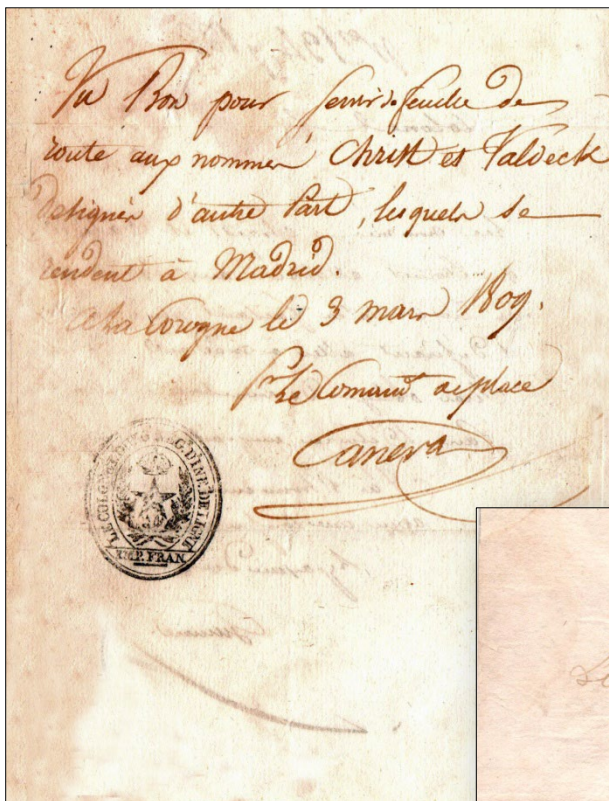 Vu Bon pour servir de feuille de
route aux nommés Christ et Valdeck
désignés d'autre Part, lesquels se
rendent à Madrid.
A La Corogne le 3 mars 1809.
Pr Le Comant de place
Canera
LE COLONEL DU REG. D'INF. DE LIGNE
EMP. FRAN.